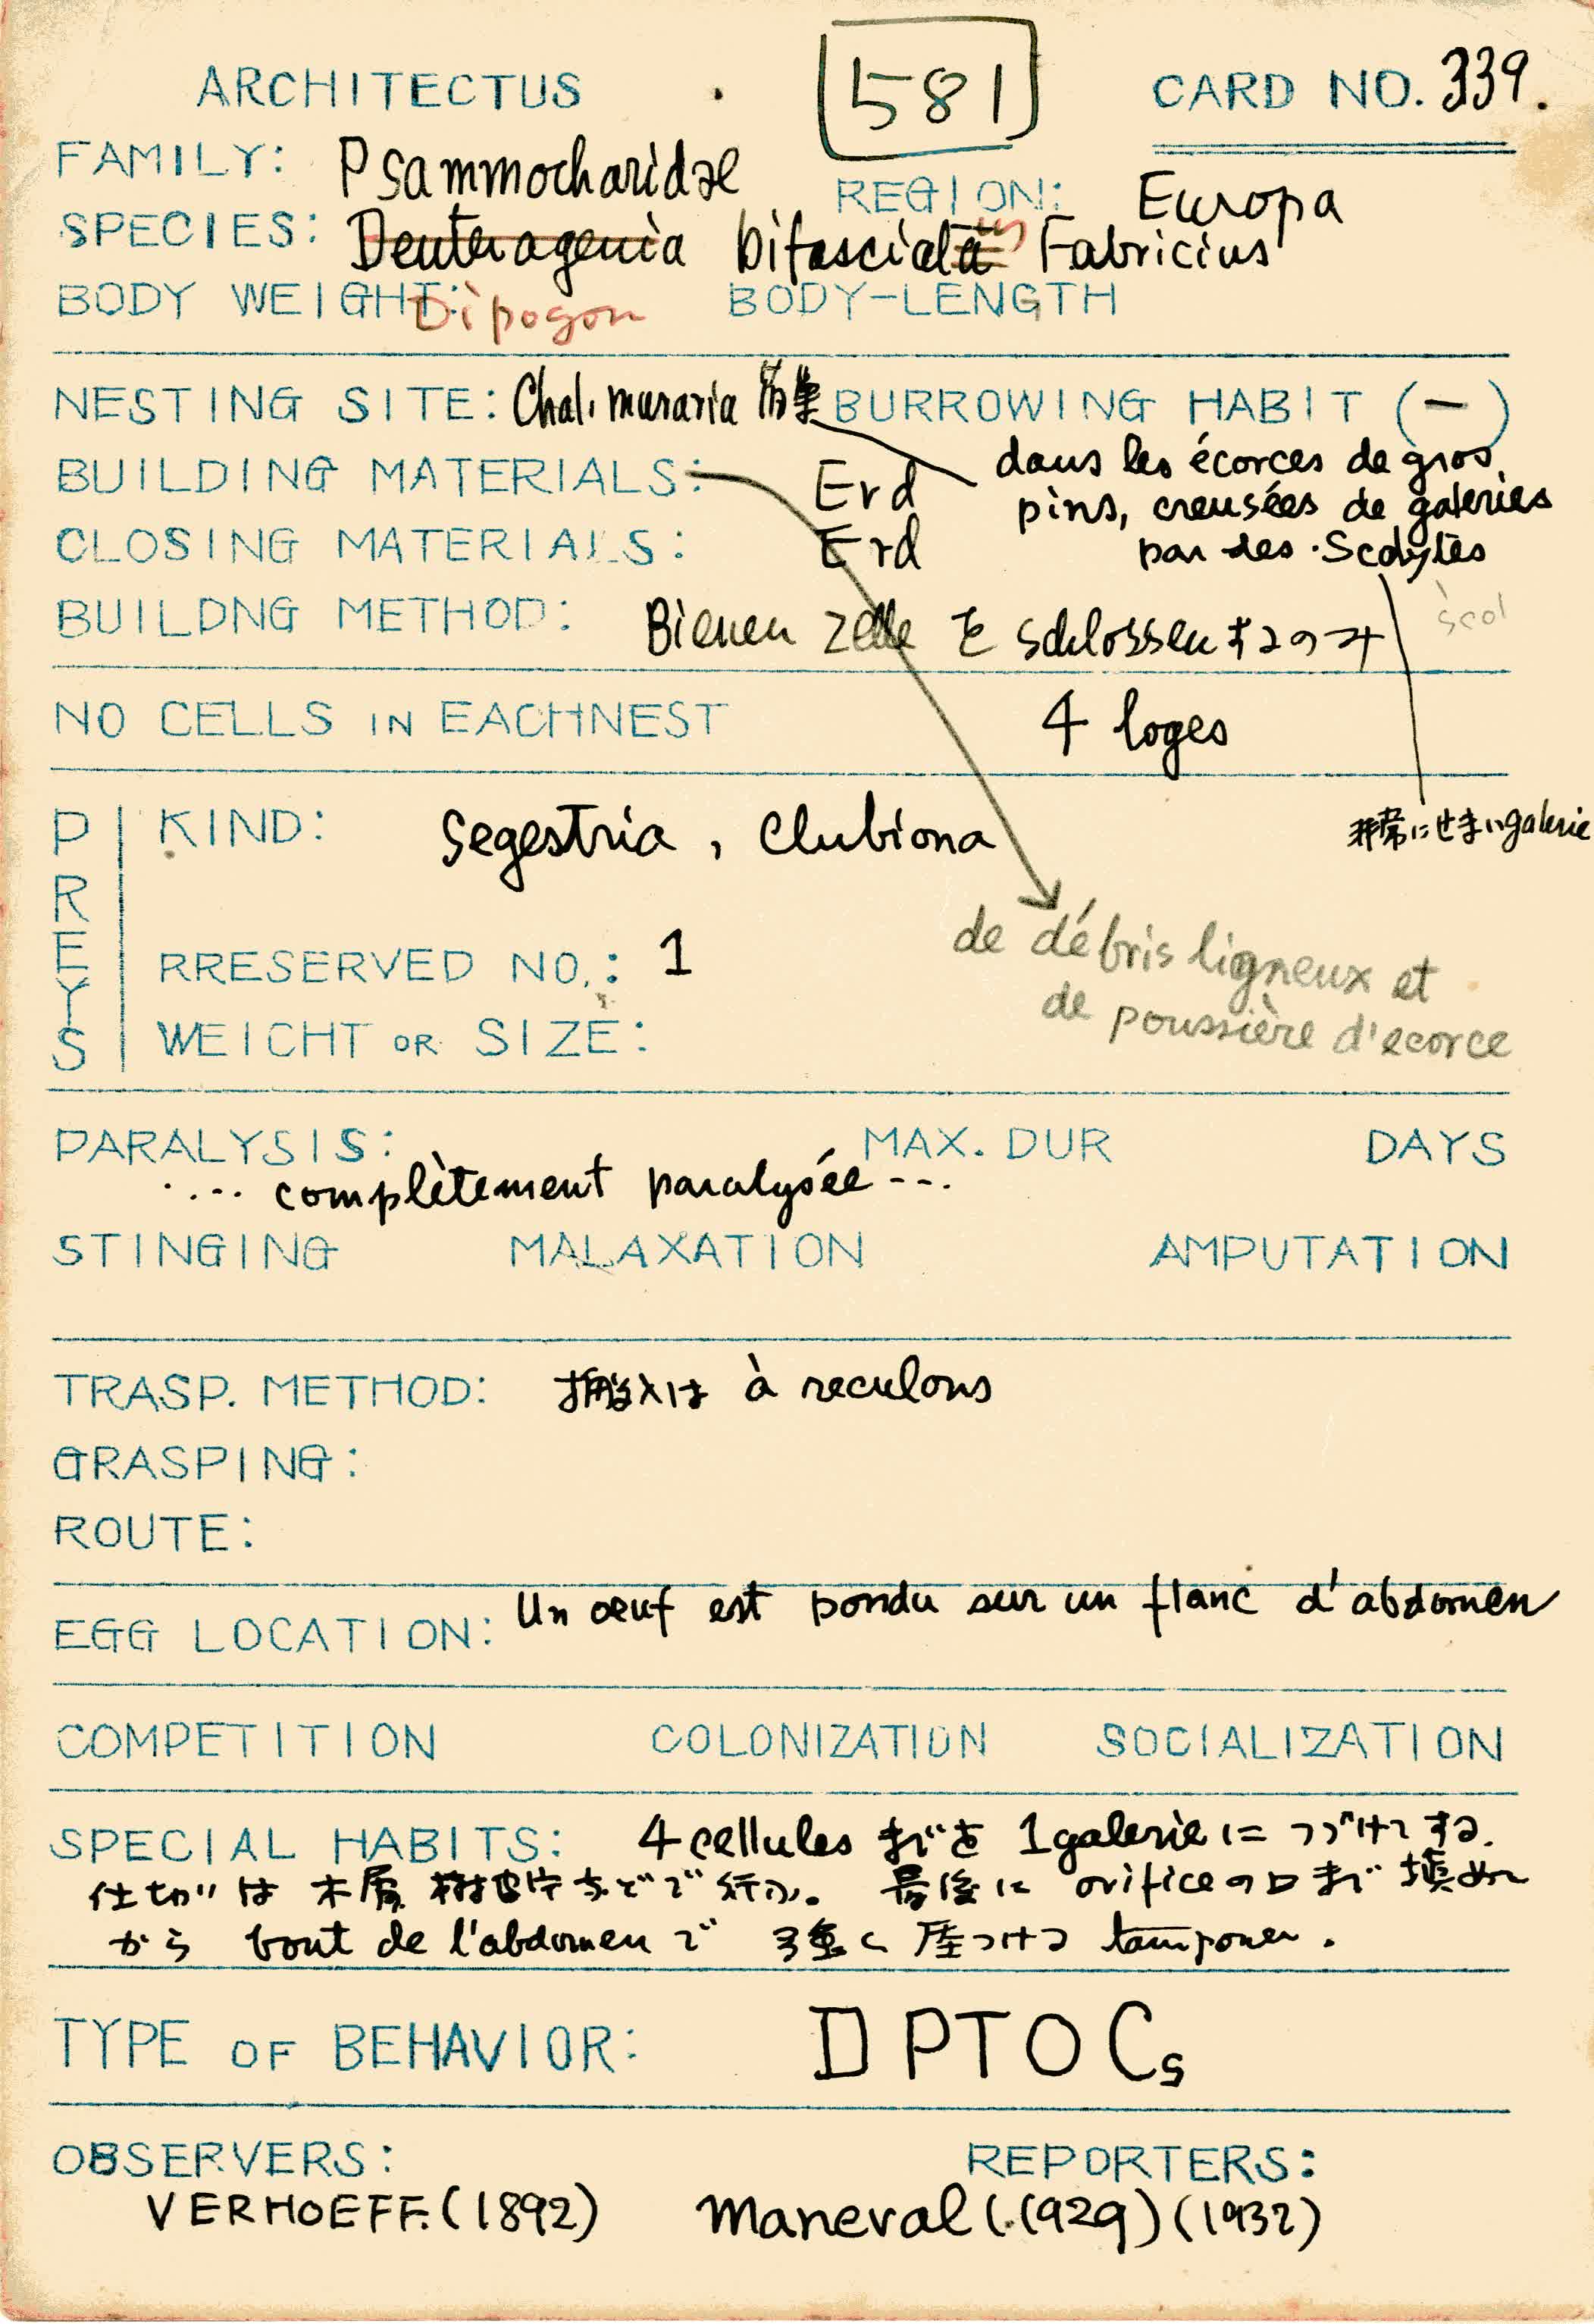 ARCHITECTUS 581 CARD NO. 339.
FAMILY: Psammocharidae REGION: Europa
SPECIES: Deuteragenia bifasciata us Fabricius
BODY WEIGHT: Dipogon BODY-LENGTH
NESTING SITE: Chal. muraria の巣 BURROWING HABIT (-)
dans les écorces de gros
pins, creusées de galeries
par des Scolytes
scol
非常にせまいgalerie
BUILDING MATERIALS: Erd
CLOSING MATERIALS: Erd
BUILDNG METHOD: Bienen zelle を schlossen するのみ
NO CELLS IN EACHNEST 4 loges
PREYS
KIND: Segestria, Clubiona
de débris ligneux et
de poussière d'ecorce
RRESERVED NO.: 1
WEICHT OR SIZE:
PARALYSIS: MAX. DUR DAYS
.... complètement paralysée ---
STINGING MALAXATION AMPUTATION
TRASP. METHOD: 搬入は à reculons
GRASPING:
ROUTE:
EGG LOCATION: Un oeuf est pondu sur un flanc d'abdomen
COMPETITION COLONIZATION SOCIALIZATION
SPECIAL HABITS: 4 cellules までを 1 galerie に つづけてする.
仕切りは 木屑 樹皮片などで行ふ。 最後に orificeの口まで填めて
から bout de l'abdomen で 強く圧つける tamponer.
TYPE OF BEHAVIOR: DPTOCs
OBSERVERS: REPORTERS:
VERHOEFF.(1892) Maneval (1929) (1932)